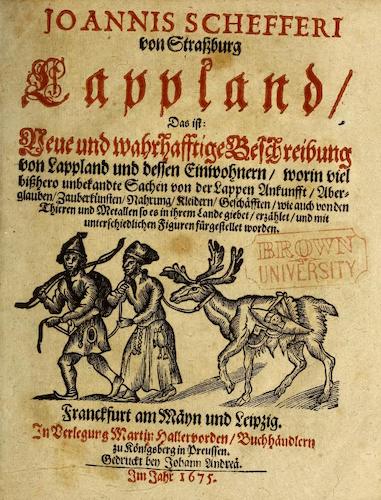 JOANNIS SCHEFFERI
von Straßburg
Lappland/
Das ist:
Neue und wahrhafftige Beschreibung
von Lappland und dessen Einwohnern / worin viel
bißhero unbekandte Sachen von der Lappen Ankunfft / Aber-
glauben / Zauberkünsten / Nahrung / Kleidern / Geschäfften / wie auch von den
Thieren und Metallen so es in ihrem Lande giebet / erzählet / und mit
unterschiedlichen Figuren fürgestellet worden.
BROWN
UNIVERSITY
Franckfurt am Mäyn und Leipzig.
In Verlegung Martin Hallervorden / Buchhändlern
zu Königsberg in Preussen.
Gedruckt bey Johann Andreä.
Im Jahr 1675.